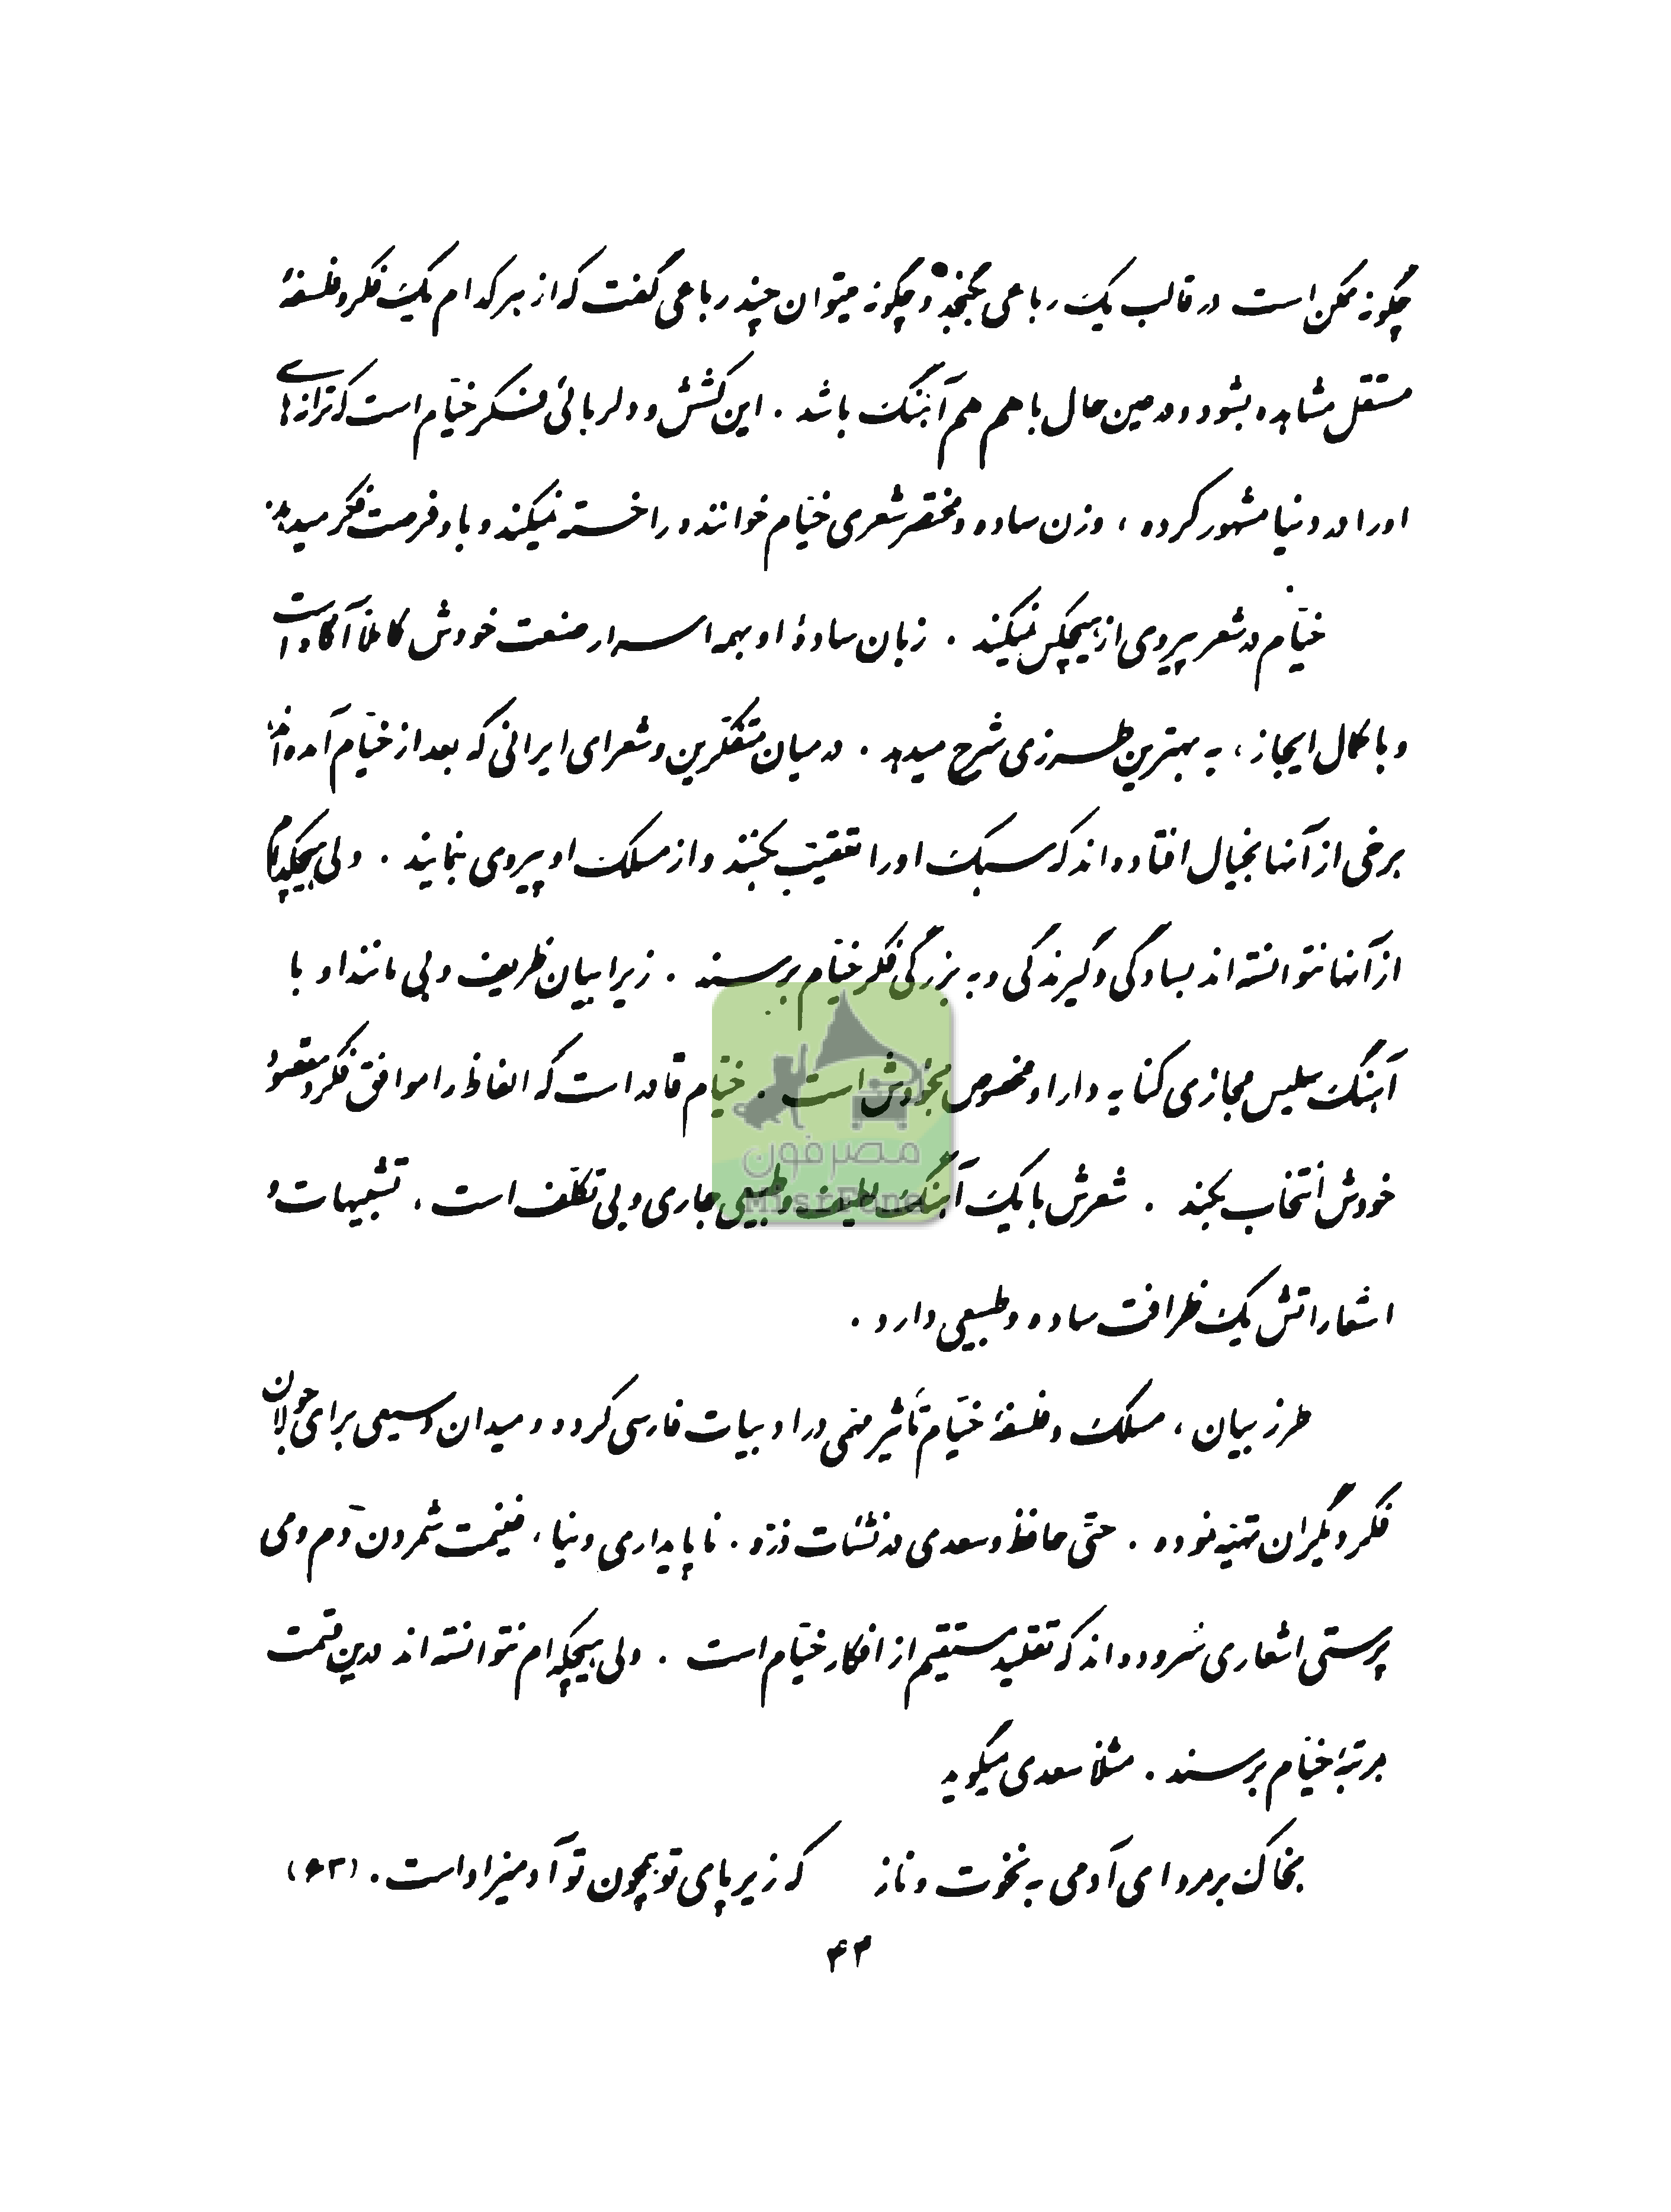 چگونه ممکن است در قالب یک رباعی بگنجد و چگونه میتوان چند رباعی گفت که از هر کدام یک فکر و فلسفهٔ
مستقل مشاهده بشود و در عین حال با هم هم آهنگ باشد . این کشش و دلربائی فکر خیّام است که ترانه‌های
او را در دنیا مشهور کرده ، وزن ساده و مختصر شعری خیّام خواننده را خسته نمیکند و باو فرصت فکر میدهد .
خیّام در شعر پیروی از هیچکس نمیکند . زبان سادهٔ او بهمه اسرار صنعت خودش کاملاً آگاه است
و با کمال ایجاز ، به بهترین طرزی شرح میدهد . در میان متفکّرین و شعرای ایرانی که بعد از خیّام آمده‌اند ،
برخی از آنها بخیال افتاده اند که سبک او را تعقیب بکنند و از مسلک او پیروی بنمایند . ولی هیچکدام
از آنها نتوانسته اند بسادگی و گیرندگی و به بزرگی فکر خیّام برسند . زیرا بیان ظریف و بی مانند او با
آهنگ سلیس مجازی کنایه دار او مخصوص بخودش است . خیّام قادر است که الفاظ را موافق فکر و مقصود
خودش انتخاب بکند . شعرش با یک آهنگ لطیف و طبیعی جاری و بی تکلّف است ، تشبیهات و
استعاراتش یک ظرافت ساده و طبیعی دارد .
طرز بیان ، مسلک و فلسفهٔ خیّام تأثیر مهمی در ادبیات فارسی کرده و میدان وسیعی برای جولان
فکر دیگران تهیّه نموده . حتّی حافظ و سعدی در نشئات ذرّه . ناپایداری دنیا ، غنیمت شمردن دم و می
پرستی اشعاری سروده اند که تقلید مستقیم از افکار خیّام است . ولی هیچکدام نتوانسته اند درین قسمت
بمرتبهٔ خیّام برسند . مثلاً سعدی میگوید
بخاک بر مرو ای آدمی به نخوت و ناز که زیر پای تو همچون تو آدمیزاد است . (۶۳)
۴۳
مصرفون
MisrFone